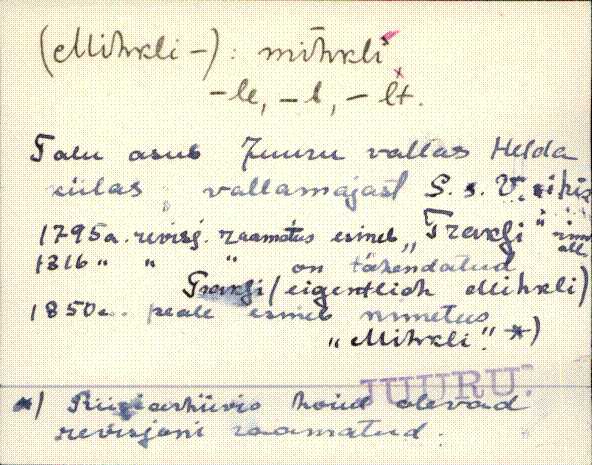 (Mihkli-): mihkli
-le, -l, -lt.
Talu asub Juuru vallas Helda
külas vallamajast 5. s. V.
1795a. revisj. raamatus esineb „Trangi" nime
all.
1816 " " " on tähendatud
Trangi (eigentlich Mihkli)
1850a. peale esineb nimetus
„Mihkli". *)
JUURU.
*) Riigiarhiivis hoiul olevad
revisjoni raamatud.